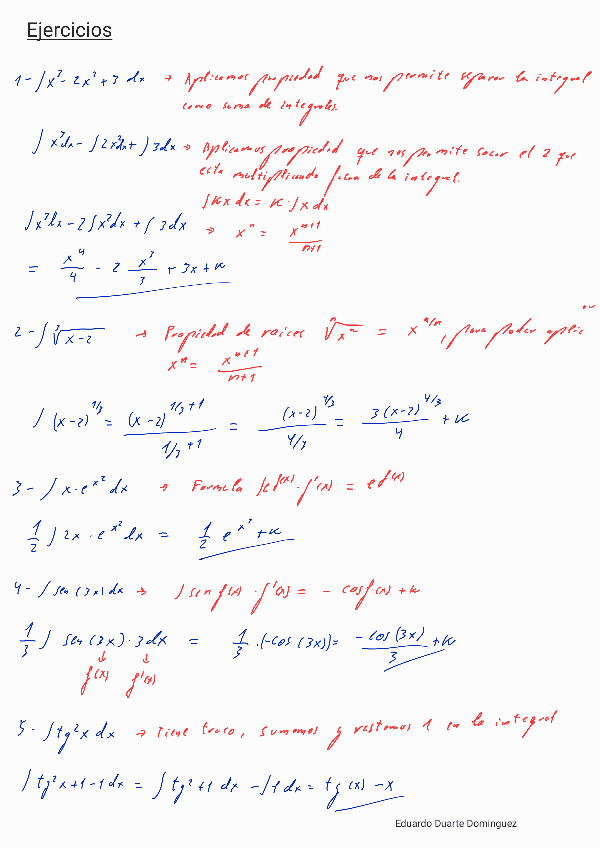 Ejercicios
1 - ∫ x³ - 2x² + 3 dx → Aplicamos propiedad que nos permite separar la integral
como suma de integrales.
∫ x³dx - ∫ 2x²dx + ∫ 3dx → Aplicamos propiedad que nos permite sacar el 2 que
esta multiplicando fuera de la integral.
∫ Kx dx = K · ∫ x dx
∫ x³dx - 2 ∫ x²dx + ∫ 3 dx → xⁿ = xⁿ⁺¹/n+1
= x⁴/4 - 2 x³/3 + 3x + K
2 - ∫ ³√(x-2) → Propiedad de raices
xⁿ = xⁿ⁺¹/n+1
∫ (x-2)^1/3 = (x-2)^(1/3+1) / 1/3+1 = (x-2)^4/3 / 4/3 = 3(x-2)^4/3 / 4 + K
3 - ∫ x·e^x² dx → Formula ∫ e^f(x) · f'(x) = e^f(x)
1/2 ∫ 2x · e^x² dx = 1/2 e^x² + K
4 - ∫ sen(3x) dx → ∫ sen f(x) · f'(x) = - cos f(x) + K
1/3 ∫ sen(3x) · 3dx = 1/3 · (-cos(3x)) = -cos(3x)/3 + K
↓ ↓
f(x) f'(x)
5 - ∫ tg²x dx → Tiene truco, sumamos y restamos 1 en la integral
∫ tg²x + 1 - 1 dx = ∫ tg² + 1 dx - ∫ 1 dx = tg(x) - x
Eduardo Duarte Dominguez